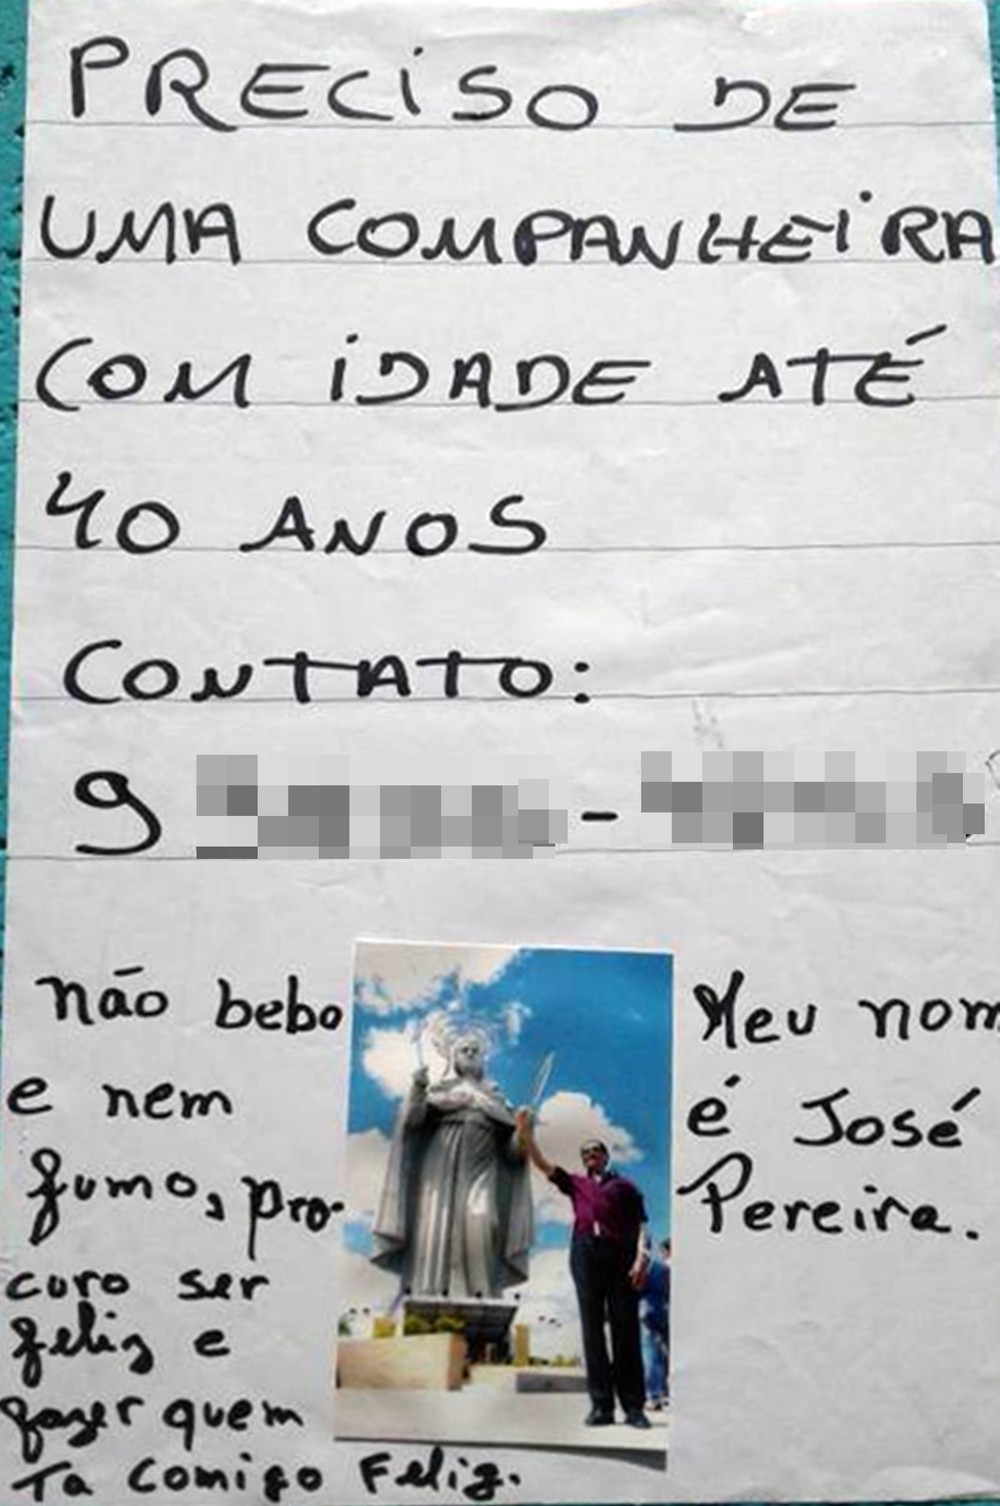 PRECISO DE
UMA COMPANHEIRA
COM IDADE ATÉ
40 ANOS
CONTATO:
9 -
não bebo
e nem
fumo, pro-
curo ser
feliz e
fazer quem
Ta comigo Feliz.
Meu nom
é José
Pereira.